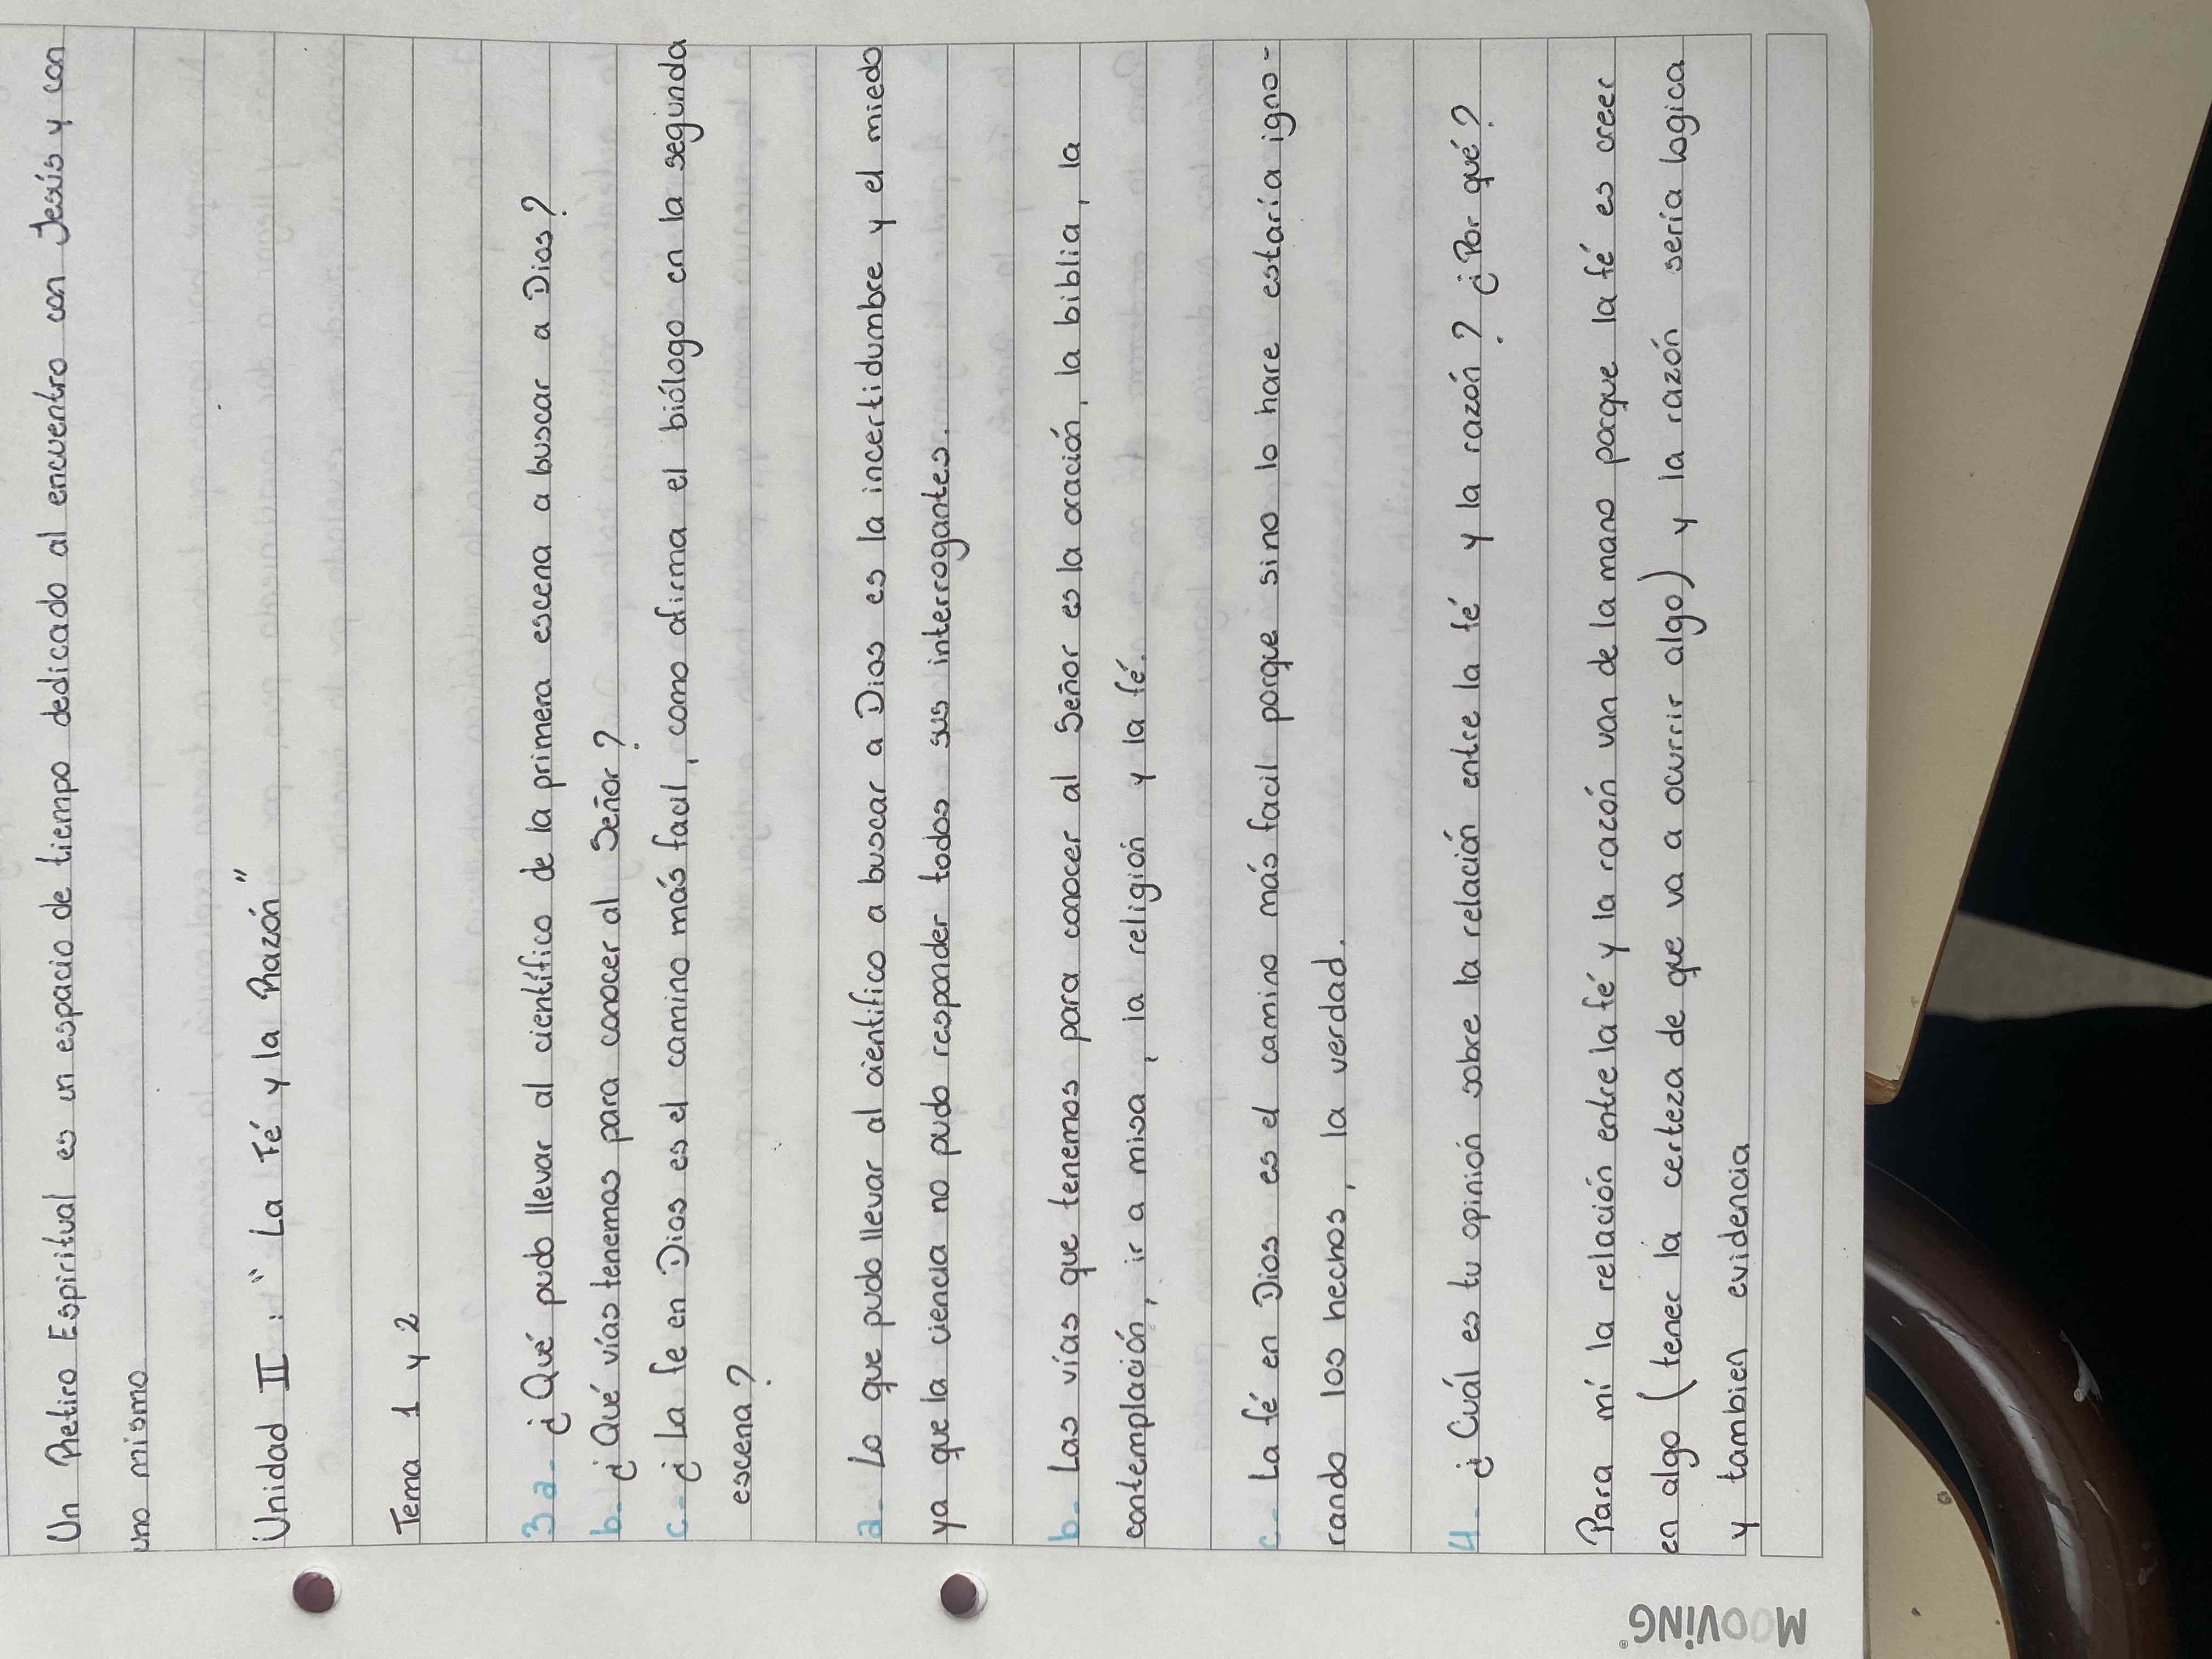 Un Retiro Espiritual es un espacio de tiempo dedicado al encuentro con Jesús y con
uno mismo
Unidad II : " La Fé y la Razón "
Tema 1 y 2
3 a- ¿Qué pudo llevar al científico de la primera escena a buscar a Dios?
b- ¿Qué vías tenemos para conocer al Señor?
c- ¿La fe en Dios es el camino más facil, como afirma el biólogo en la segunda
escena?
a- Lo que pudo llevar al cientifico a buscar a Dios es la incertidumbre y el miedo
ya que la ciencia no pudo responder todos sus interrogantes.
b- Las vías que tenemos para conocer al Señor es la oración, la biblia, la
contemplación, ir a misa, la religión y la fé.
c- La fé en Dios es el camino más facil porque sino lo hare estaría igno-
rando los hechos, la verdad.
4- ¿Cuál es tu opinión sobre la relación entre la fé y la razón? ¿Por qué?
Para mí la relación entre la fé y la razón van de la mano porque la fé es creer
en algo (tener la certeza de que va a ocurrir algo) y la razón sería logica
y tambien evidencia
MOOVING